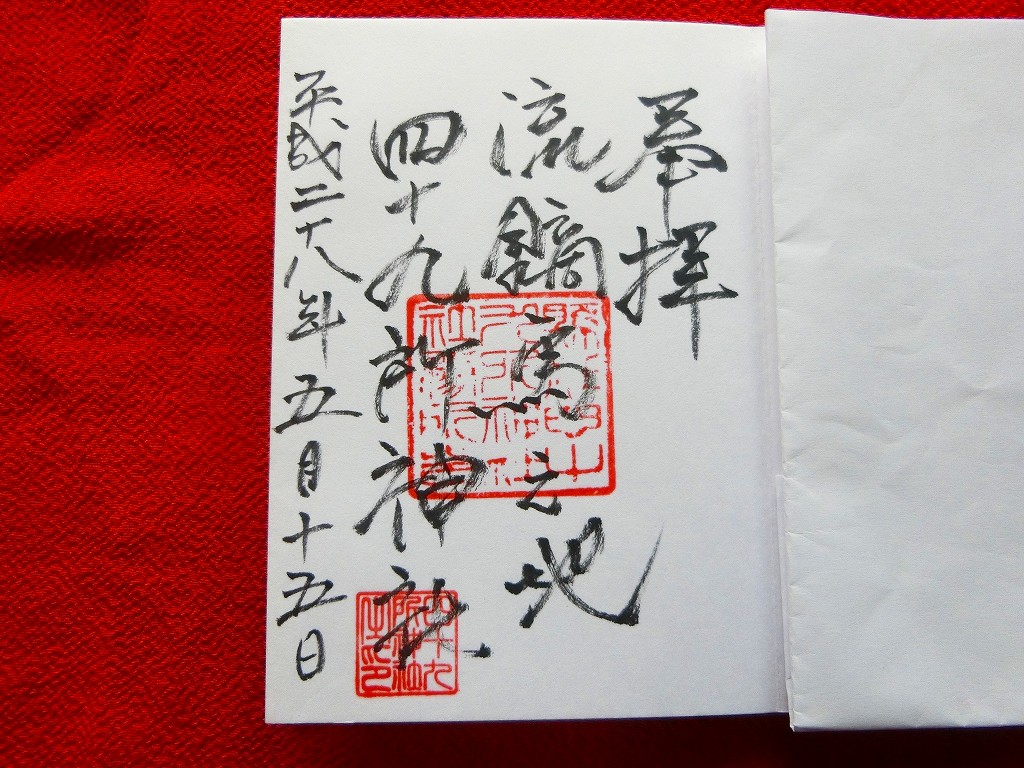 奉拝
流鏑馬之地
四十九所神社
平成二十八年五月十五日